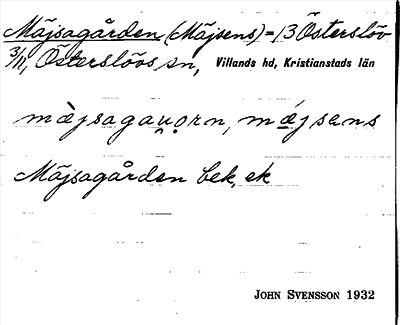 Mäjsagården (Mäjsens) = 13 Österslöv
3/11, Österslövs sn, Villands hd, Kristianstads län
mæ̀jsagau̯o̤rn, mǽjsens
Mäjsagården bek, ek
JOHN SVENSSON 1932